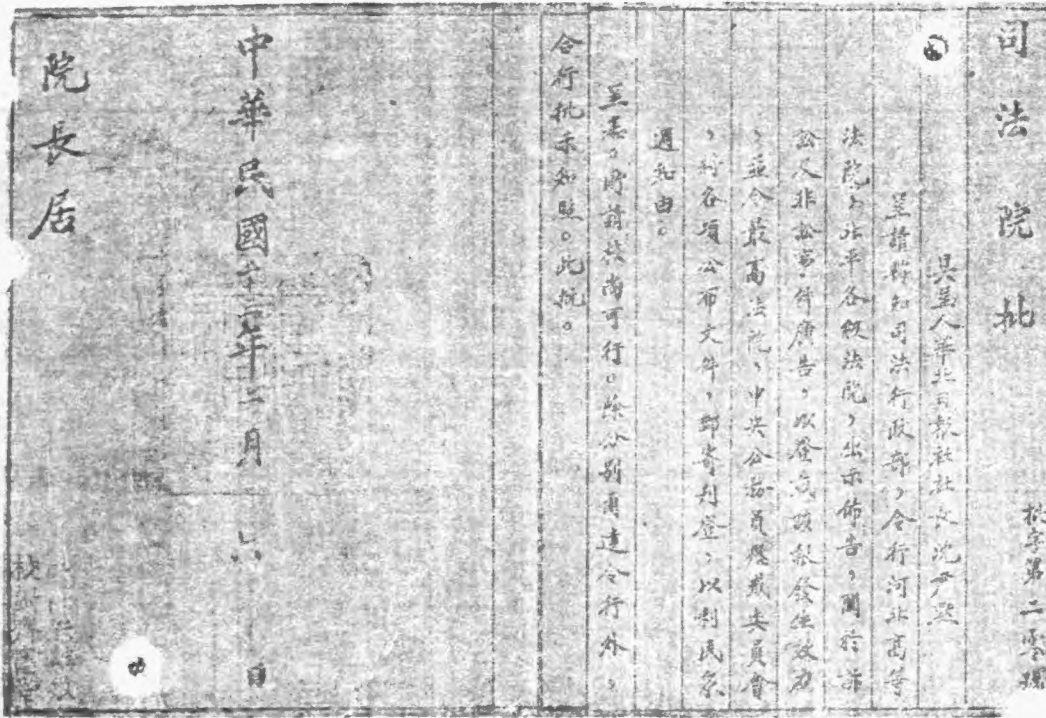 司法院批
批字第二零號
具呈人華北日報社社長沈尹默
呈請轉知司法行政部，令行河北高等
法院，北平各級法院，出示佈告，關於訴
訟人非訟事件廣告，以登載該報發生效力
，並令最高法院、中央公務員懲戒委員會
，將各項公布文件，郵寄刊登，以利民眾
週知由。
呈悉。所請核尚可行。除分別函達令行外，
合行批示知照。此批。
中華民國年二月六日
院長居